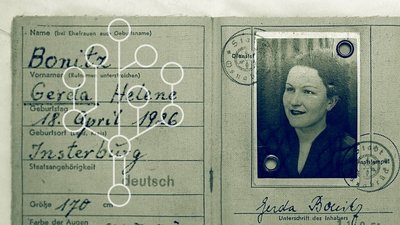 Name (bei Ehefrauen auch Geburtsname)
Bonitz
Vornamen (Rufnamen unterstreichen)
Gerda Helene
Geburtstag
18. April 1926
Geburtsort
Insterburg
Staatsangehörigkeit
deutsch
Größe 170 cm
Farbe der Augen
Gerda Bonitz
Unterschrift des Inhabers